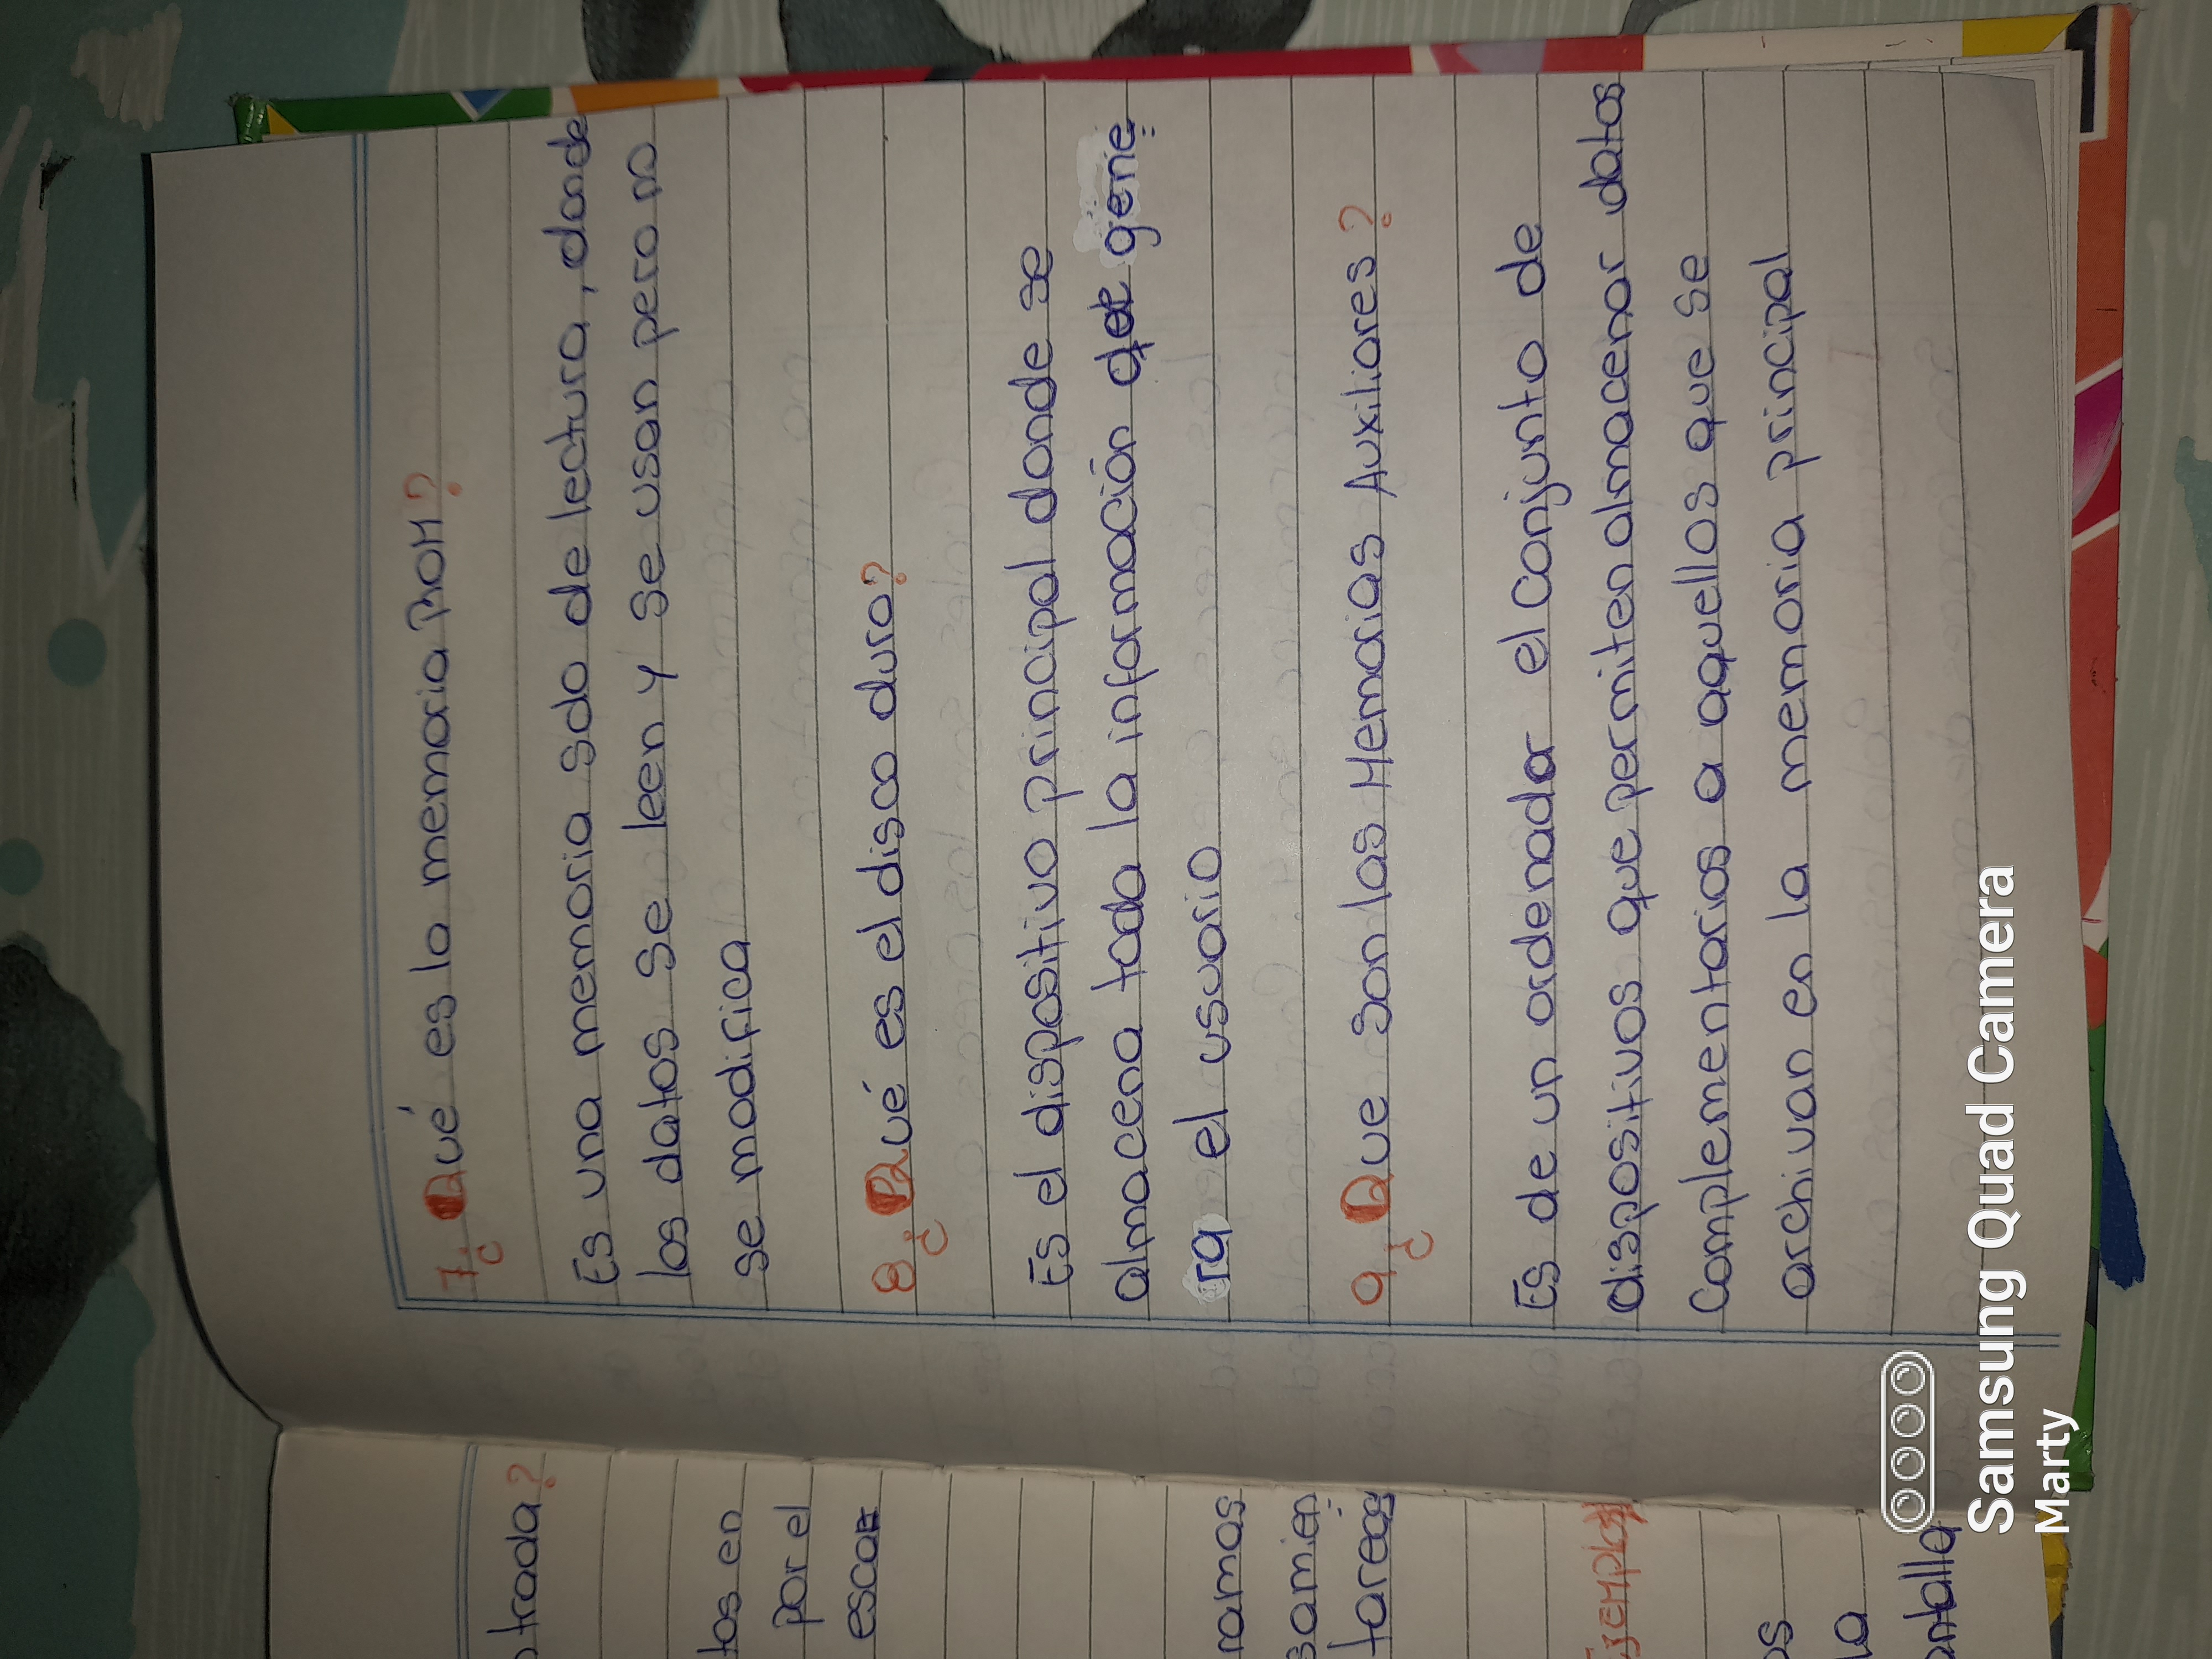 7. ¿Qué es la memoria ROM?
Es una memoria solo de lectura, donde
los datos se leen y se usan pero no
se modifica
8. ¿Qué es el disco duro?
Es el dispositivo principal donde se
almacena toda la información del gene
ra el usuario
9. ¿Que son las Memorias Auxiliares?
Es de un ordenador el conjunto de
dispositivos que permiten almacenar datos
complementarios a aquellos que se
archivan en la memoria principal
trada?
tos en
por el
ramas
samien
tareas
Ejemplos
os
la
antalla
Samsung Quad Camera
Marty